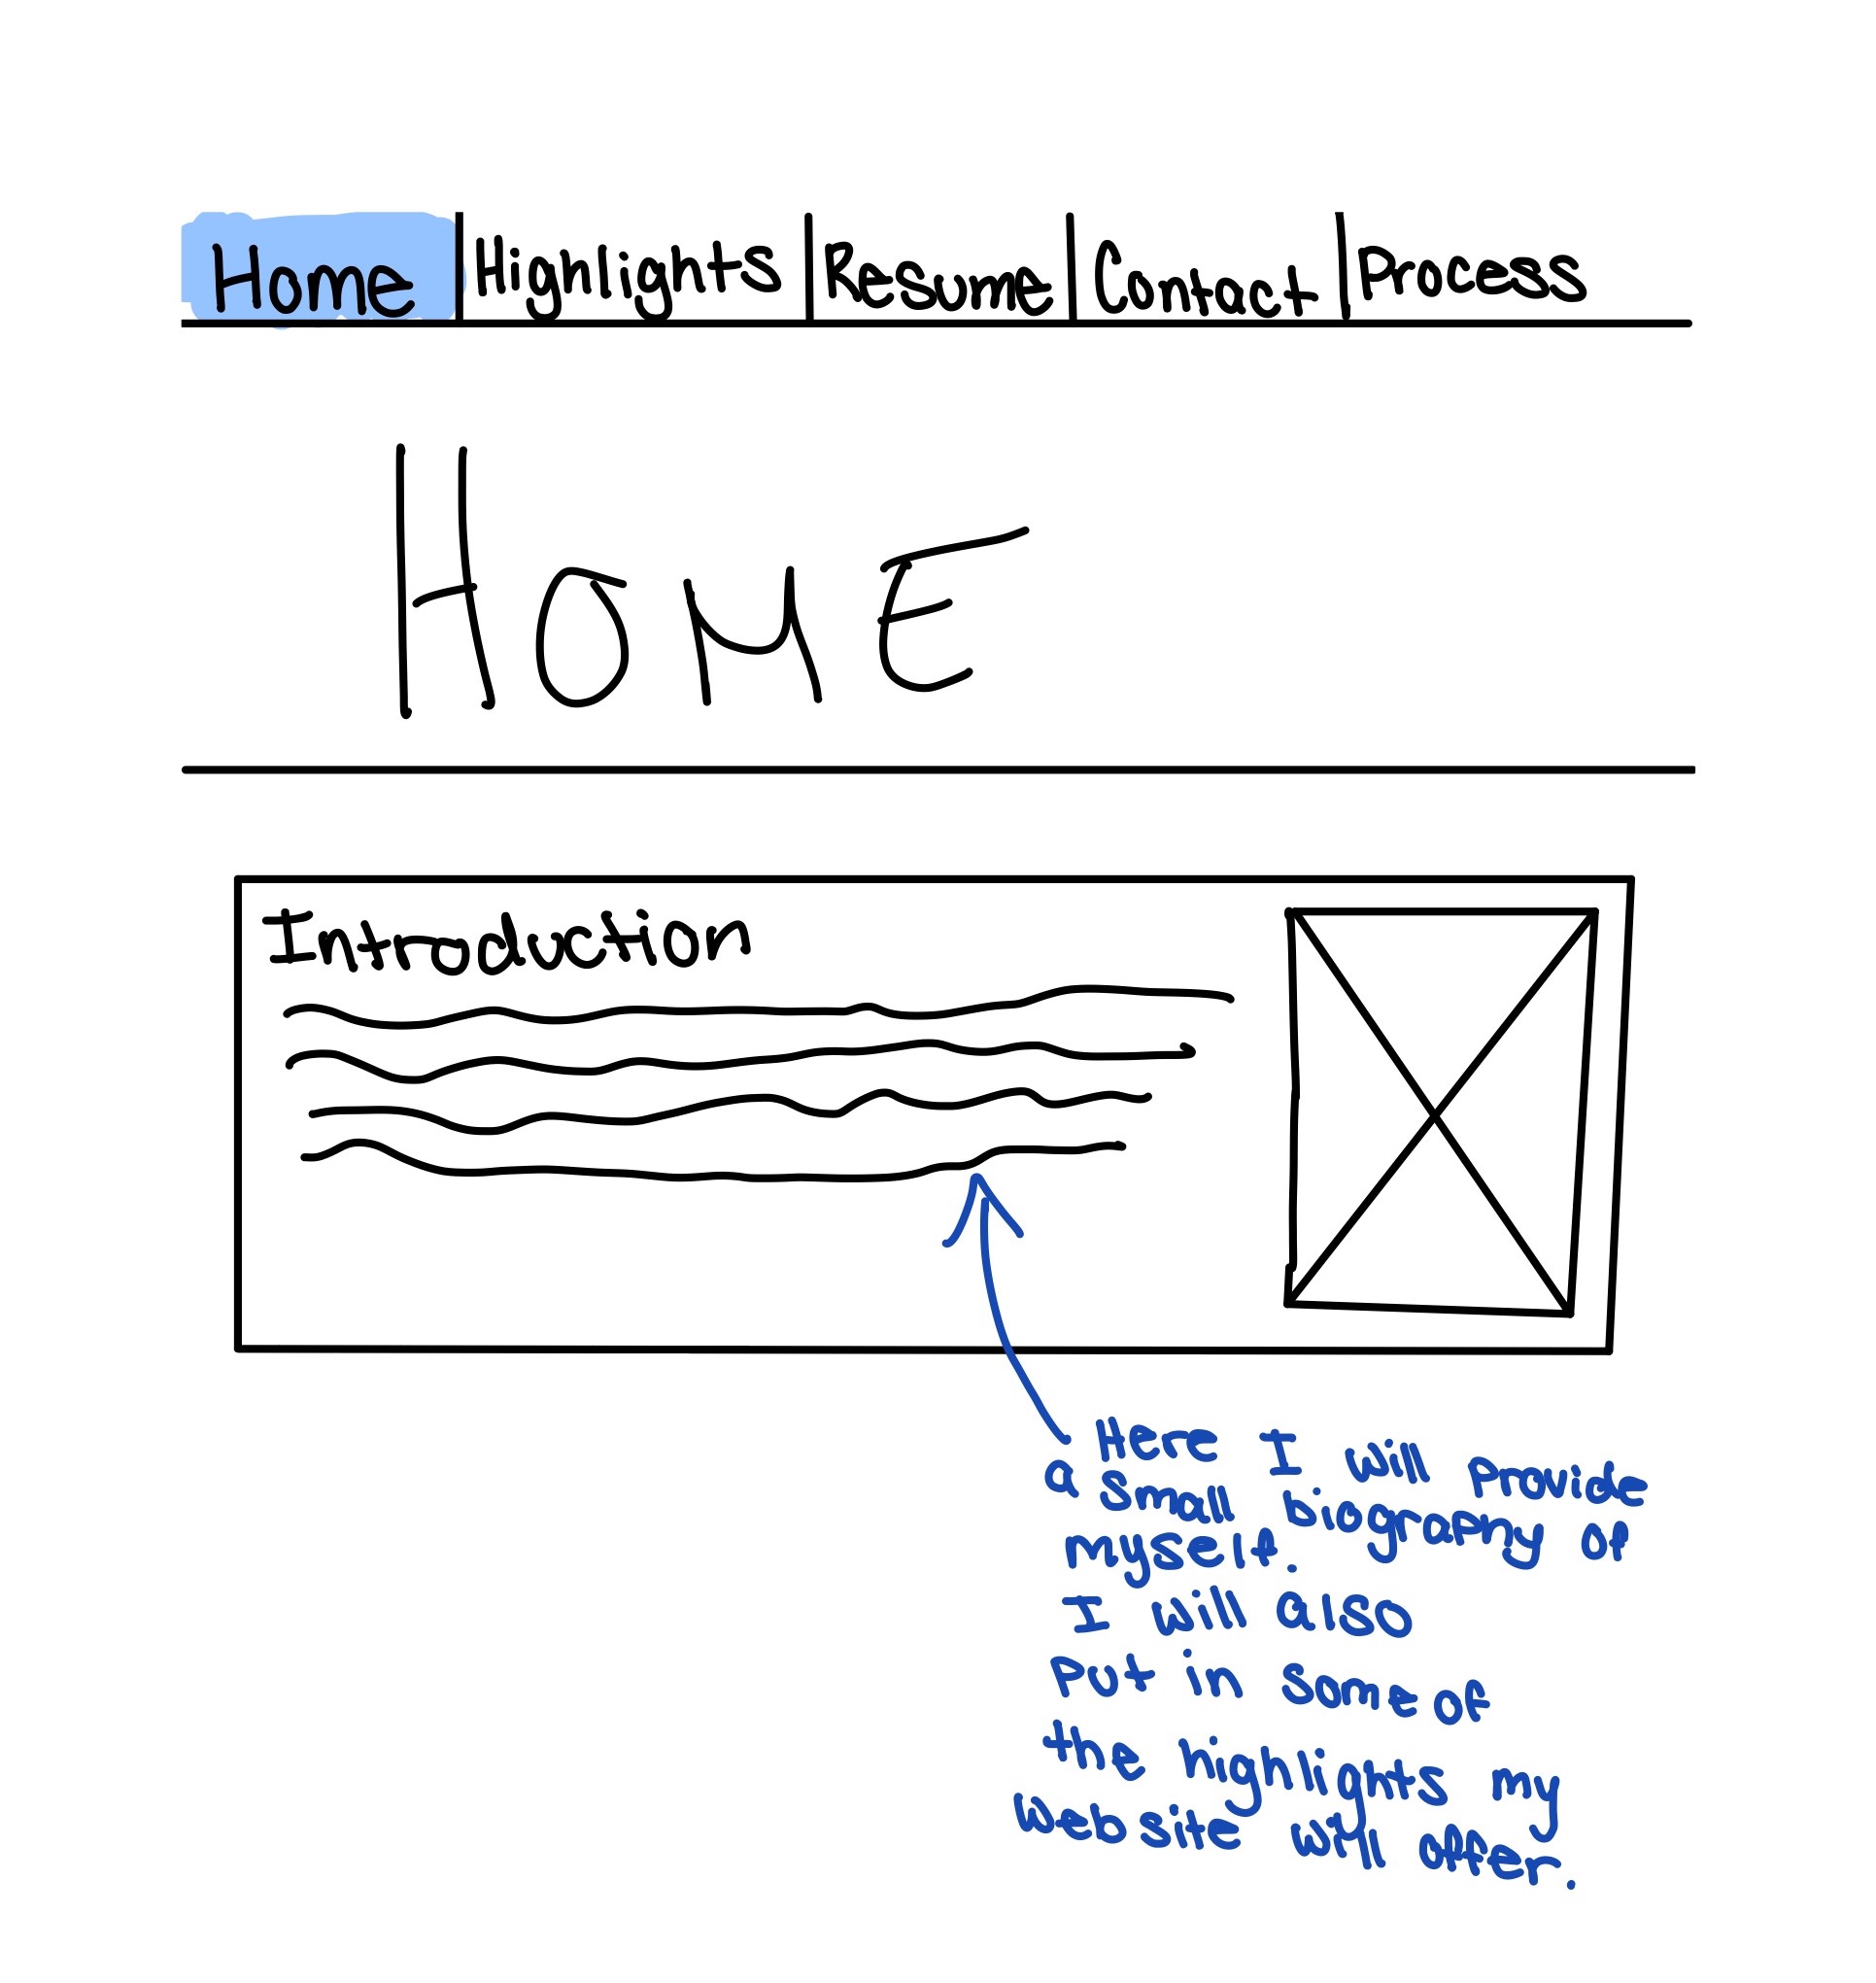 Home Highlights Resume Contact Process
HOME
Introduction
Here I will provide
a small biography of
myself.
I will also
Put in some of
the highlights my
website will offer.